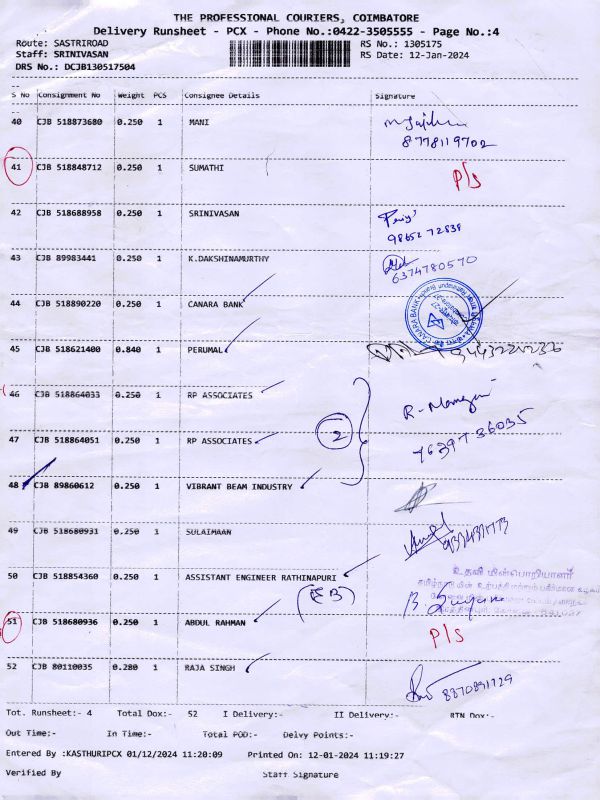 THE PROFESSIONAL COURIERS, COIMBATORE
Delivery Runsheet - PCX - Phone No.:0422-3505555 - Page No.:4
Route: SASTRIROAD RS No.: 1305175
Staff: SRINIVASAN RS Date: 12-Jan-2024
DRS No.: DCJB130517504
S No Consignment No Weight PCS Consignee Details Signature
40 CJB 518873680 0.250 1 MANI
8778119702
41 CJB 518848712 0.250 1 SUMATHI P/S
42 CJB 518688958 0.250 1 SRINIVASAN
98652 72838
43 CJB 89983441 0.250 1 K.DAKSHINAMURTHY
6374780570
44 CJB 518890220 0.250 1 CANARA BANK CANARA BANK
45 CJB 518621400 0.840 1 PERUMAL
46 CJB 518864033 0.250 1 RP ASSOCIATES
2
47 CJB 518864051 0.250 1 RP ASSOCIATES
76397 36035
48 CJB 89860612 0.250 1 VIBRANT BEAM INDUSTRY
49 CJB 518680931 0.250 1 SULAIMAAN
50 CJB 518854360 0.250 1 ASSISTANT ENGINEER RATHINAPURI
உதவி மின்பொறியாளர்
(EB)
51 CJB 518680936 0.250 1 ABDUL RAHMAN P/S
52 CJB 80110035 0.280 1 RAJA SINGH
Tot. Runsheet:- 4 Total Dox:- 52 I Delivery:- II Delivery:- RTN Dox:-
Out Time:- In Time:- Total POD:- Delvy Points:-
Entered By :KASTHURIPCX 01/12/2024 11:20:09 Printed On: 12-01-2024 11:19:27
Verified By Staff Signature